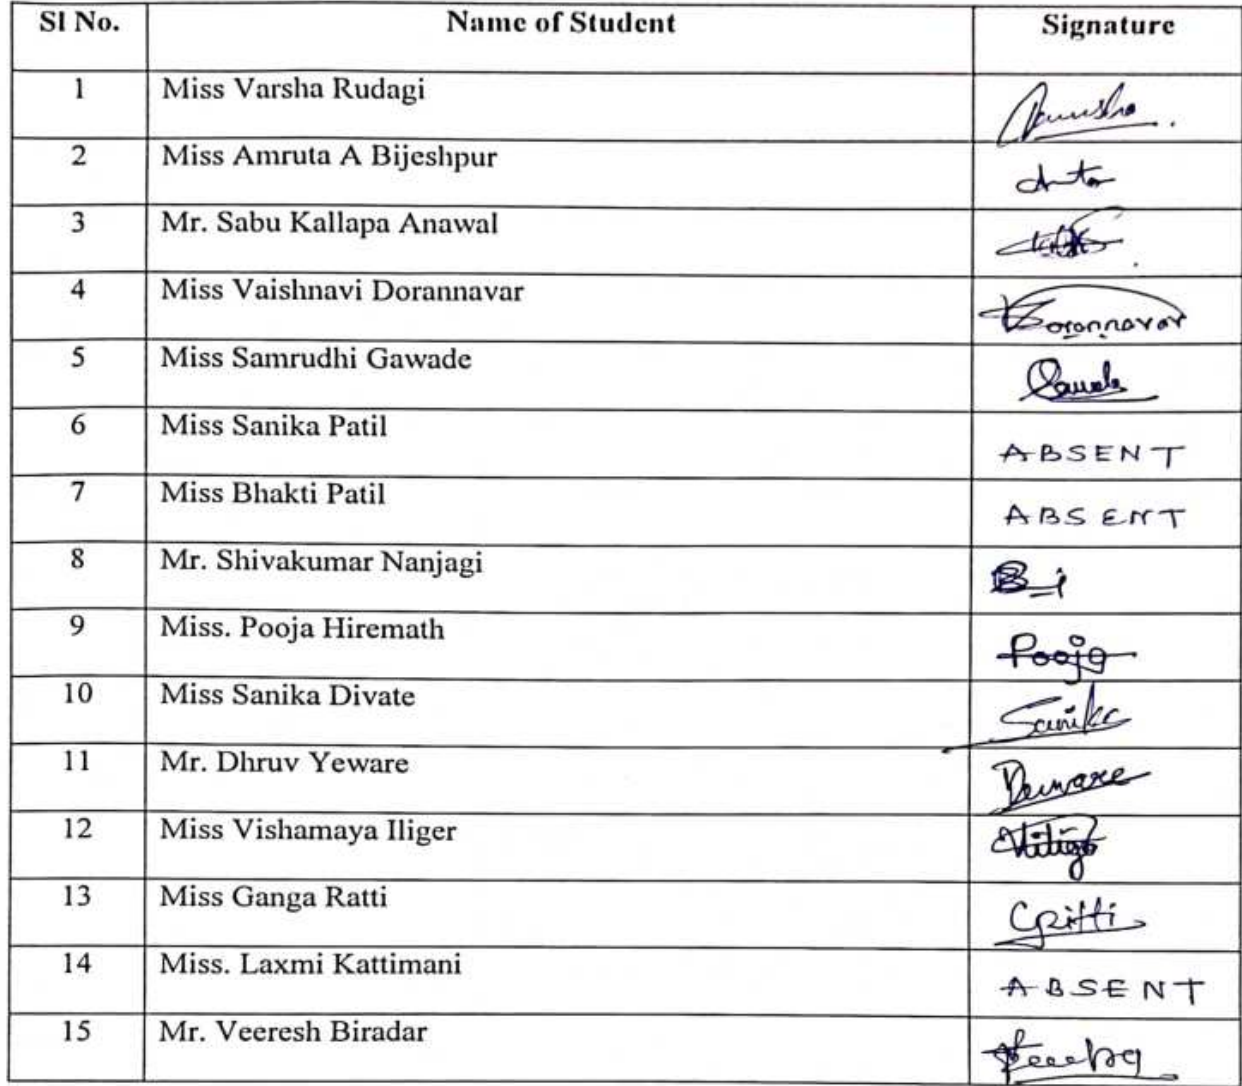 Sl No. Name of Student Signature
1 Miss Varsha Rudagi
2 Miss Amruta A Bijeshpur
3 Mr. Sabu Kallapa Anawal
4 Miss Vaishnavi Dorannavar Dorannavar
5 Miss Samrudhi Gawade
6 Miss Sanika Patil ABSENT
7 Miss Bhakti Patil ABSENT
8 Mr. Shivakumar Nanjagi
9 Miss. Pooja Hiremath Pooja
10 Miss Sanika Divate Sanika
11 Mr. Dhruv Yeware
12 Miss Vishamaya Iliger
13 Miss Ganga Ratti
14 Miss. Laxmi Kattimani ABSENT
15 Mr. Veeresh Biradar